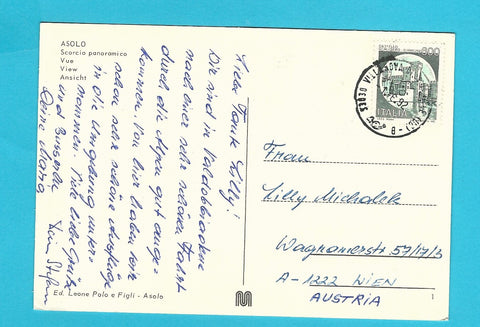 ASOLO
Scorcio panoramico
Vue
View
Ansicht
Liebe Tante Lilly!
Wir sind in Valdobbiadene
nach einer sehr schönen Fahrt
durch die Alpen gut ange-
kommen. Von hier haben wir
schon sehr schöne Ausflüge
in die Umgebung unter-
nommen. Viele liebe Grüße
und Busserln
Deine Maria
Dein Stefan
Ed. Leone Palo e Figli - Asolo
ITALIA
Frau
Lilly Michalek
Wagramerstr 57/17/3
A-1222 WIEN
AUSTRIA
1